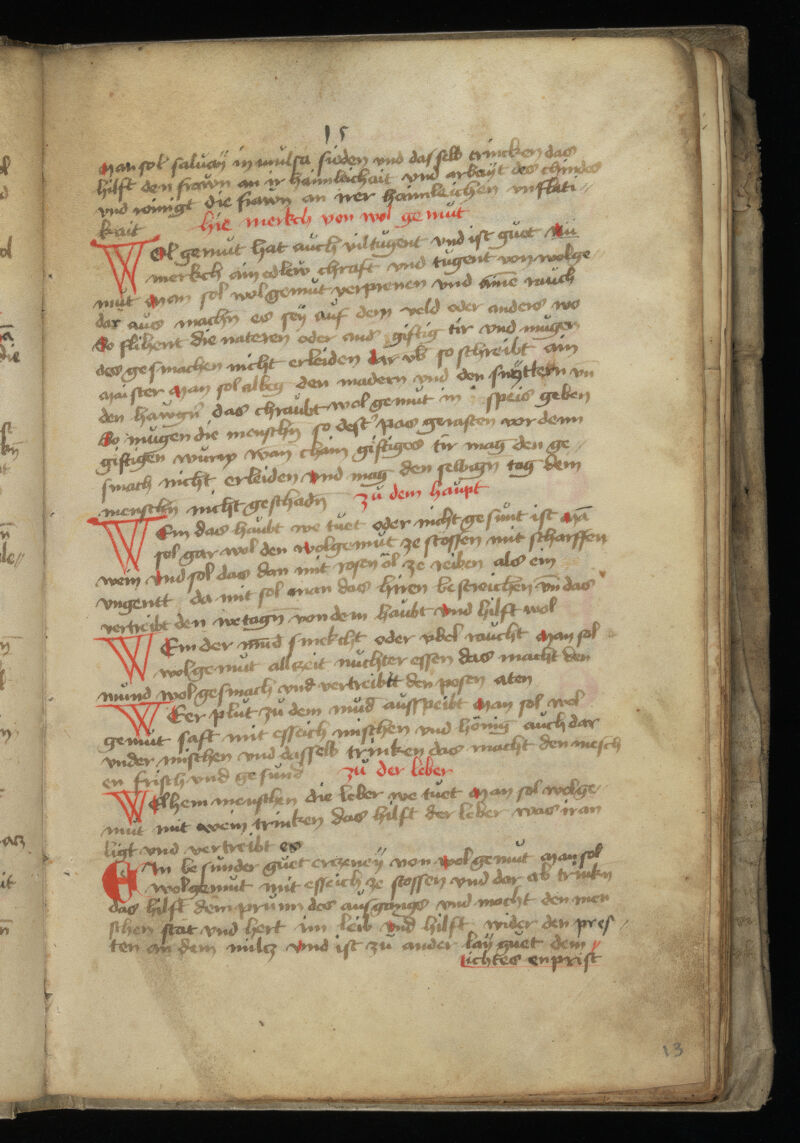 15
Man sol saluay in mulsa sieden vnd das selb trincken das
hilft den frawn an ir haimleichait vnd arbayt des chindes
vnd rainigt die frawn an irer haimleichen vnflati-
kait hie merkch von wol gemut
Wolgemut hat auch vil tugent vnd ist guet Nu
merkch ain edlew chraft vnd tugent von wolge-
mut Man sol wolgemut verprenen vnd aine rauch
dar aus machn es sey auf dem veld oder anders wo
So flihent die nateren oder and giftig tir vnd mugen
des gesmachen nicht erleiden dar vb so schreibt ain
maister Man sol albeg den madern vnd den snyttern vn̄
den hawgn das chraubt wolgemut in speis geben
So mugen die menschn so dest pas gerasten vor denn
giftigen wurm wan chain giftiges tir mag den ge-
smach nicht erleiden vnd mag den selbign tag dem
menschn nicht geschadn zu dem haupt
Wem das haubt we tuet oder nicht gesunt ist Mā
sol gar wol den wolgemut ze stossen mit scharffen
wein vnd sol das dan mit rosen öl ze reiben als ein
vngentt da mit sol man das hiren bestreichen vn̄ das
vertreibt den wetagn von dem haubt vnd hilft wol
Wem der mūd smekcht oder vbel raucht Man sol
wolgemut allzeit nuchter essen das macht den
mund wolgesmach vnd vertreibtt den posen aten
Wer plut zu dem mud ausspeibt Man sol wol
gemut saft mit esseich mischen vnd hönig auch dar
vnder mischen vnd dasselb trinken das macht den mesch
en frisch vnd gesund zu der leber
Welhem menschen die leber we tuet Man sol wolge-
mut mit wein trinken das hilft der leber was ir an
ligt vnd vertreibt es
Ein besunder guet erczeney von wolgemut Man sol
wolgemut mit esseich ze stossen vnd dar ab trinkn
das hilft dem prunn des ausgangs vnd macht den men
schen stat vnd hert im leib vnd hilft wider den pres-
ten an dem milcz vnd ist zu ander lay guet dem
lichtes enprist
13